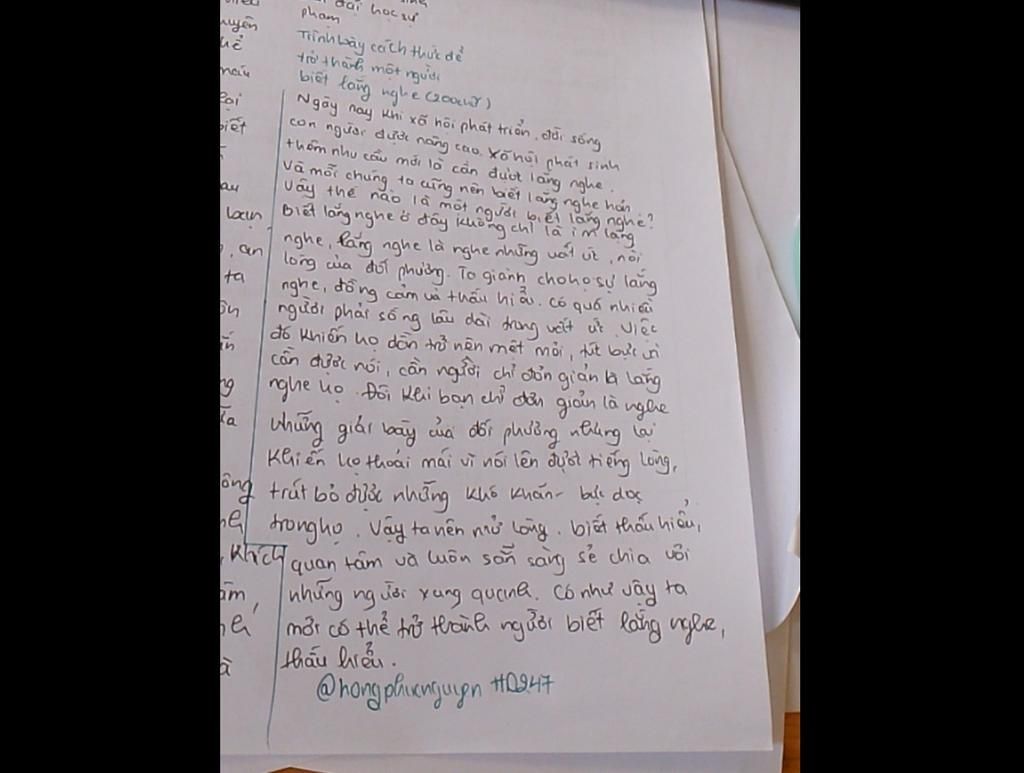 đại học sư
phạm
Trình bày cách thức để
trở thành một người
biết lắng nghe (200 chữ)
Ngày nay khi xã hội phát triển, đời sống
con người được nâng cao. Xã hội phát sinh
thêm nhu cầu mới là cần được lắng nghe.
Và mỗi chúng ta cũng nên biết lắng nghe hơn.
Vậy thế nào là một người biết lắng nghe?
Biết lắng nghe ở đây không chỉ là im lặng
nghe, lắng nghe là nghe những uất ức, nỗi
lòng của đối phương. Ta giành cho họ sự lắng
nghe, đồng cảm và thấu hiểu. Có quá nhiều
người phải sống lâu dài trong uất ức. Việc
đó khiến họ dần trở nên mệt mỏi, tức bực vì
cần được nói, cần người chỉ đơn giản là lắng
nghe họ. Đôi khi bạn chỉ đơn giản là nghe
những giải bày của đối phương nhưng lại
khiến họ thoải mái vì nói lên được tiếng lòng,
trút bỏ được những khó khăn - bực dọc
trong họ. Vậy ta nên mở lòng. biết thấu hiểu,
quan tâm và luôn sẵn sàng sẻ chia với
những người xung quanh. Có như vậy ta
mới có thể trở thành người biết lắng nghe,
thấu hiểu.
@hongphucnguyen #D247
uyên
biết
ta
ông
khích
âm,